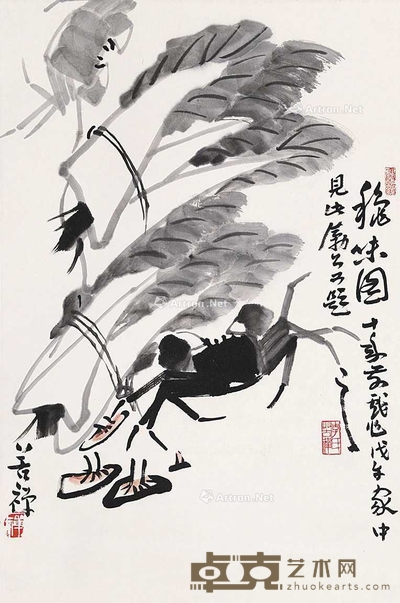 秋味图
十年前戏作戊午家中
见此勵公又题
苦禅
Artron.Net
Artron.Net
Artron.Net
Artron.Net
卓克艺术网
www.zhuokearts.com